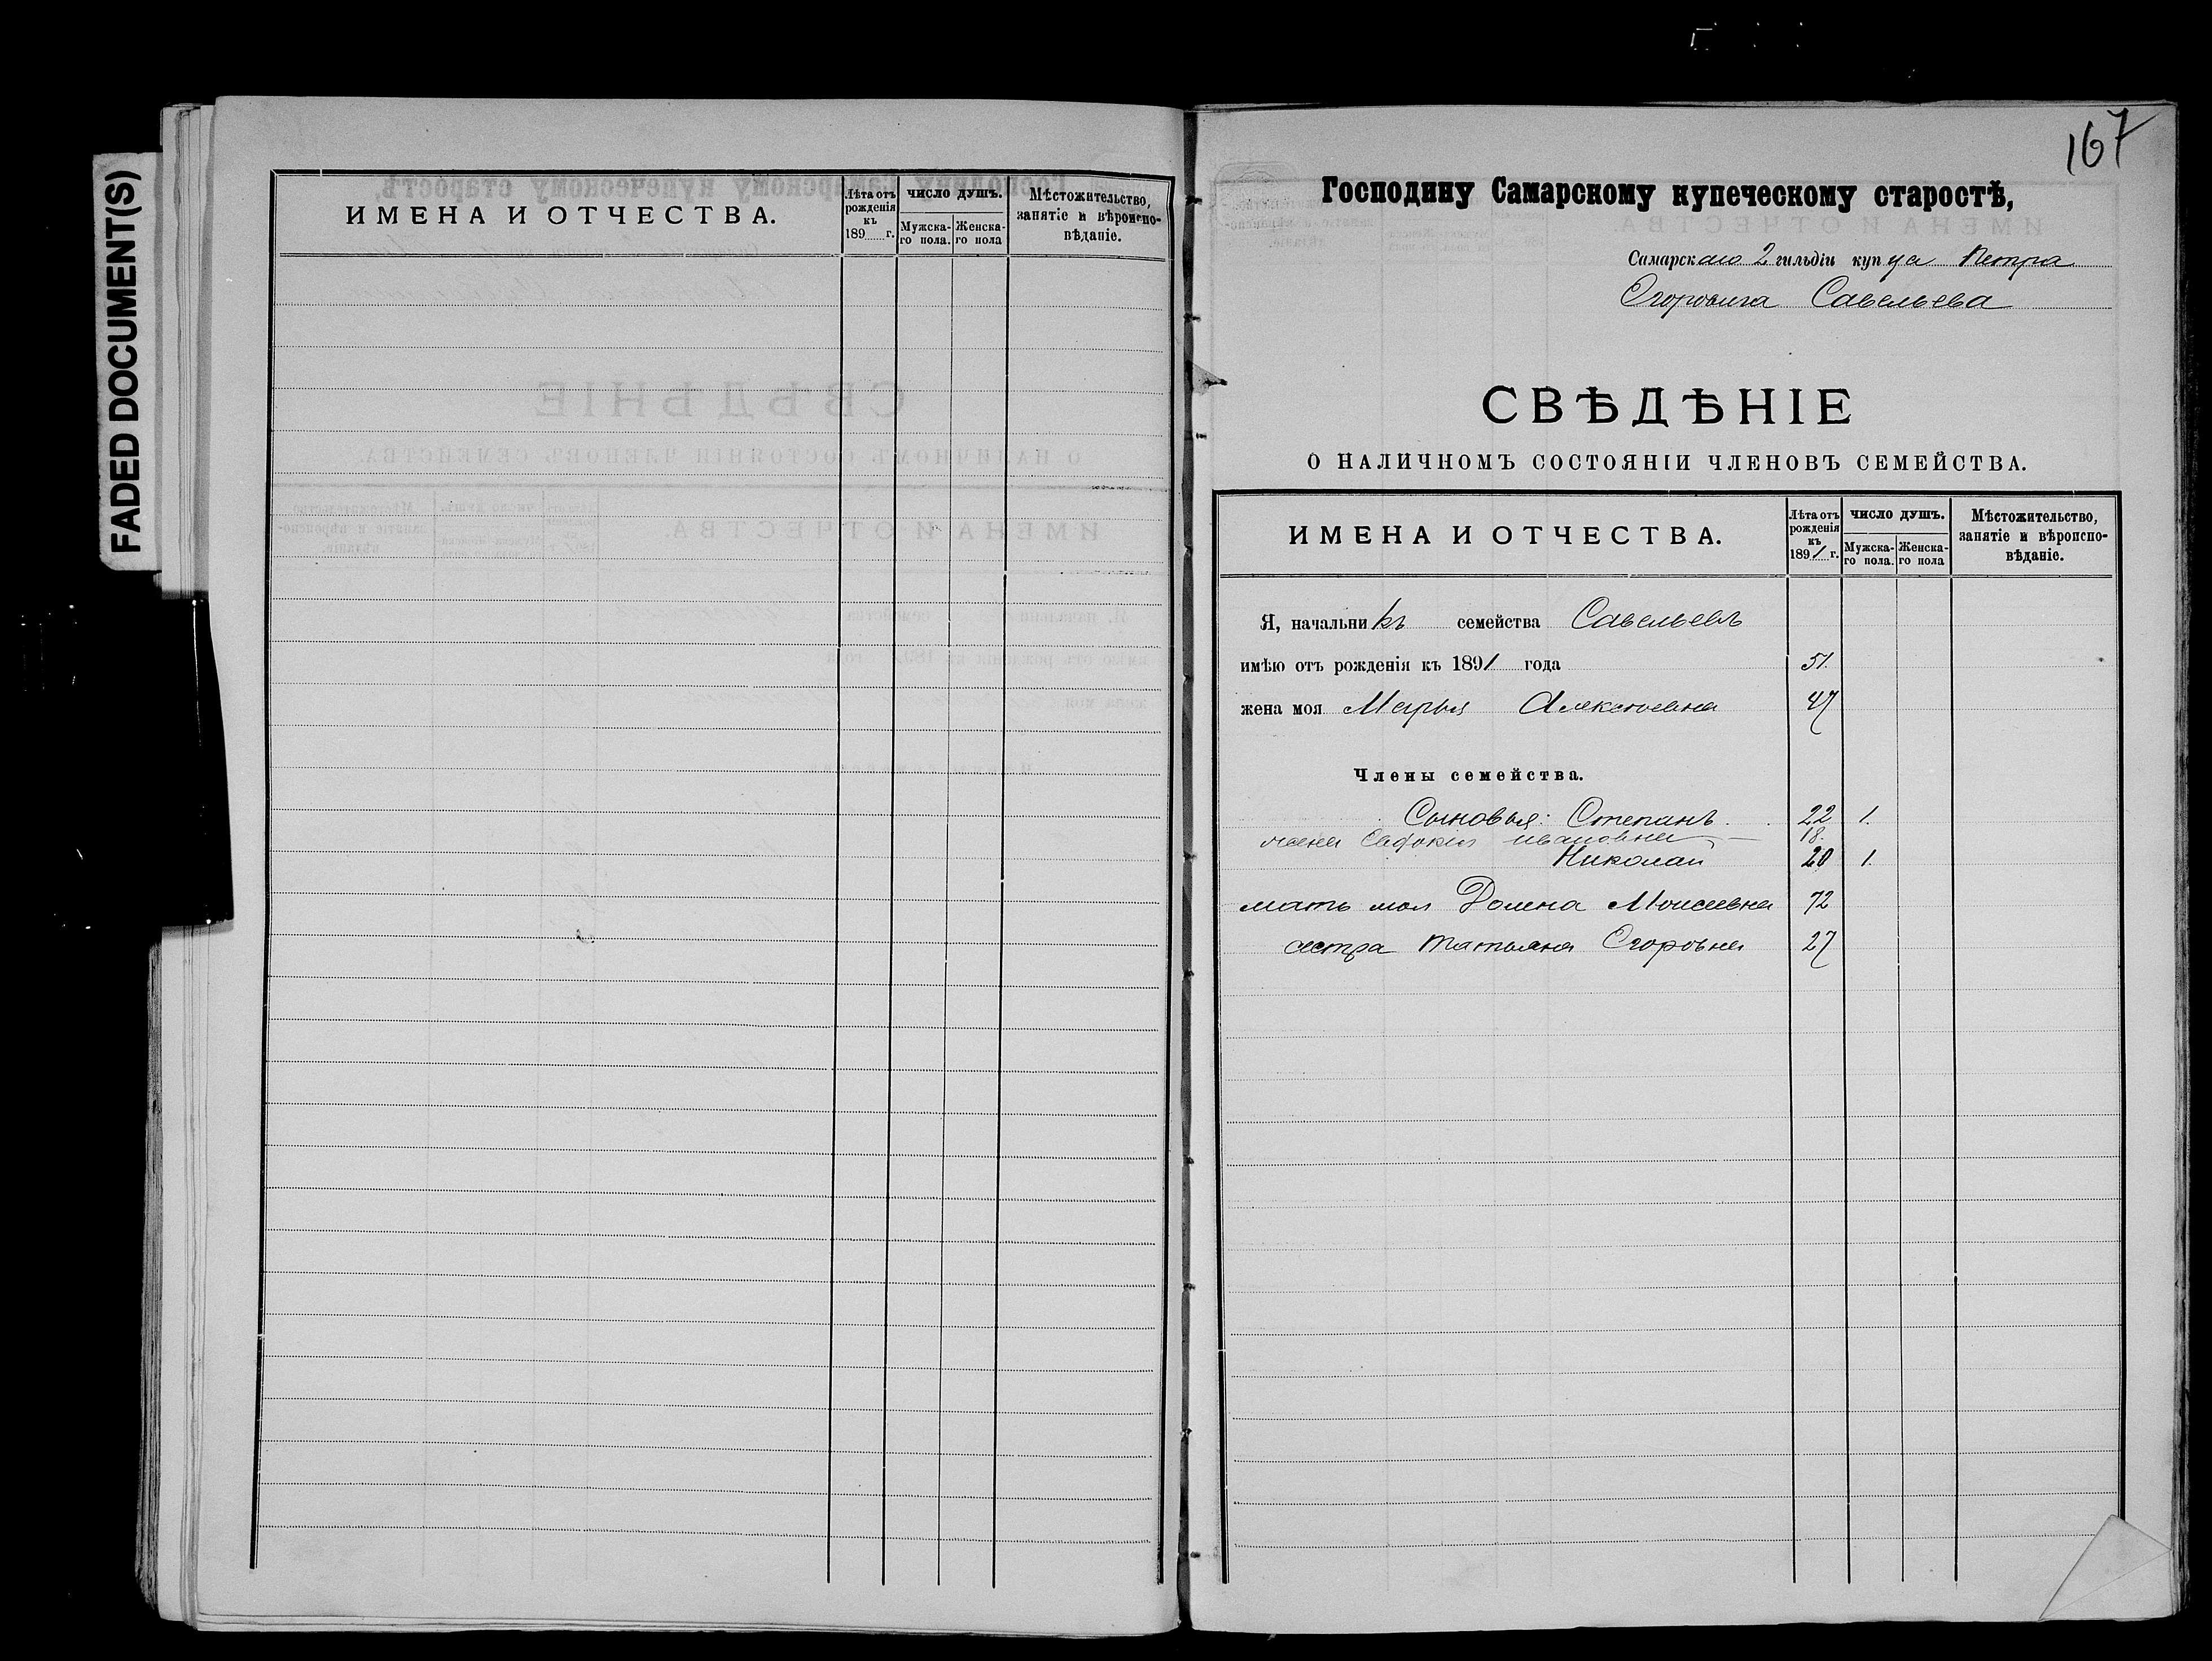 FADED DOCUMENT(S)
ИМЕНА И ОТЧЕСТВА.
Лѣта отъ рожденія къ 189 г.
ЧИСЛО ДУШЪ.
Мужска-го пола.
Женска-го пола
Мѣстожительство, занятіе и вѣроиспо-вѣданіе.
167
Господину Самарскому купеческому старостѣ,
Самарскаго 2 гильдіи купца Петра
Егоровича Савельева
СВѢДѢНІЕ
О НАЛИЧНОМЪ СОСТОЯНІИ ЧЛЕНОВЪ СЕМЕЙСТВА.
ИМЕНА И ОТЧЕСТВА.
Лѣта отъ рожденія къ 1891 г.
ЧИСЛО ДУШЪ.
Мужска-го пола.
Женска-го пола
Мѣстожительство, занятіе и вѣроиспо-вѣданіе.
Я, начальникъ семейства Савельевъ
имѣю отъ рожденія къ 1891 года 51.
жена моя Марья Алексѣевна 47
Члены семейства.
Сыновья: Степанъ 22 1.
жена Евдокія Ивановна 18.
Николай 20 1.
мать моя Домна Моисеевна 72
сестра Татьяна Егоровна 27